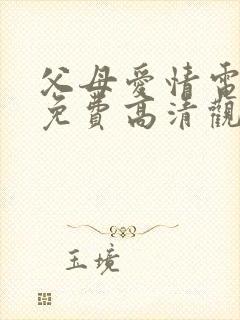 父母愛情電
免費高清觀
玉境